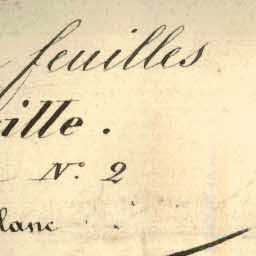 feuilles
ille.
N.° 2
lanc